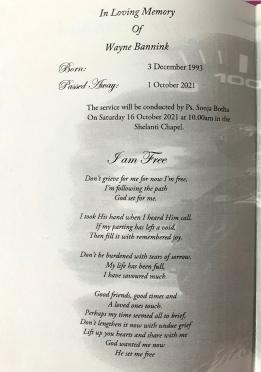 In Loving Memory
Of
Wayne Bannink
Born: 3 December 1993
Passed Away: 1 October 2021
The service will be conducted by Ps. Sonja Botha
On Saturday 16 October 2021 at 10.00am in the
Shelanti Chapel.
I am Free
Don't grieve for me for now I'm free,
I'm following the path
God set for me.
I took His hand when I heard Him call.
If my parting has left a void,
Then fill it with remembered joy.
Don't be burdened with tears of sorrow,
My life has been full,
I have savoured much.
Good friends, good times and
A loved ones touch.
Perhaps my time seemed all to brief,
Don't lengthen it now with undue grief
Lift up you hearts and share with me
God wanted me now
He set me free